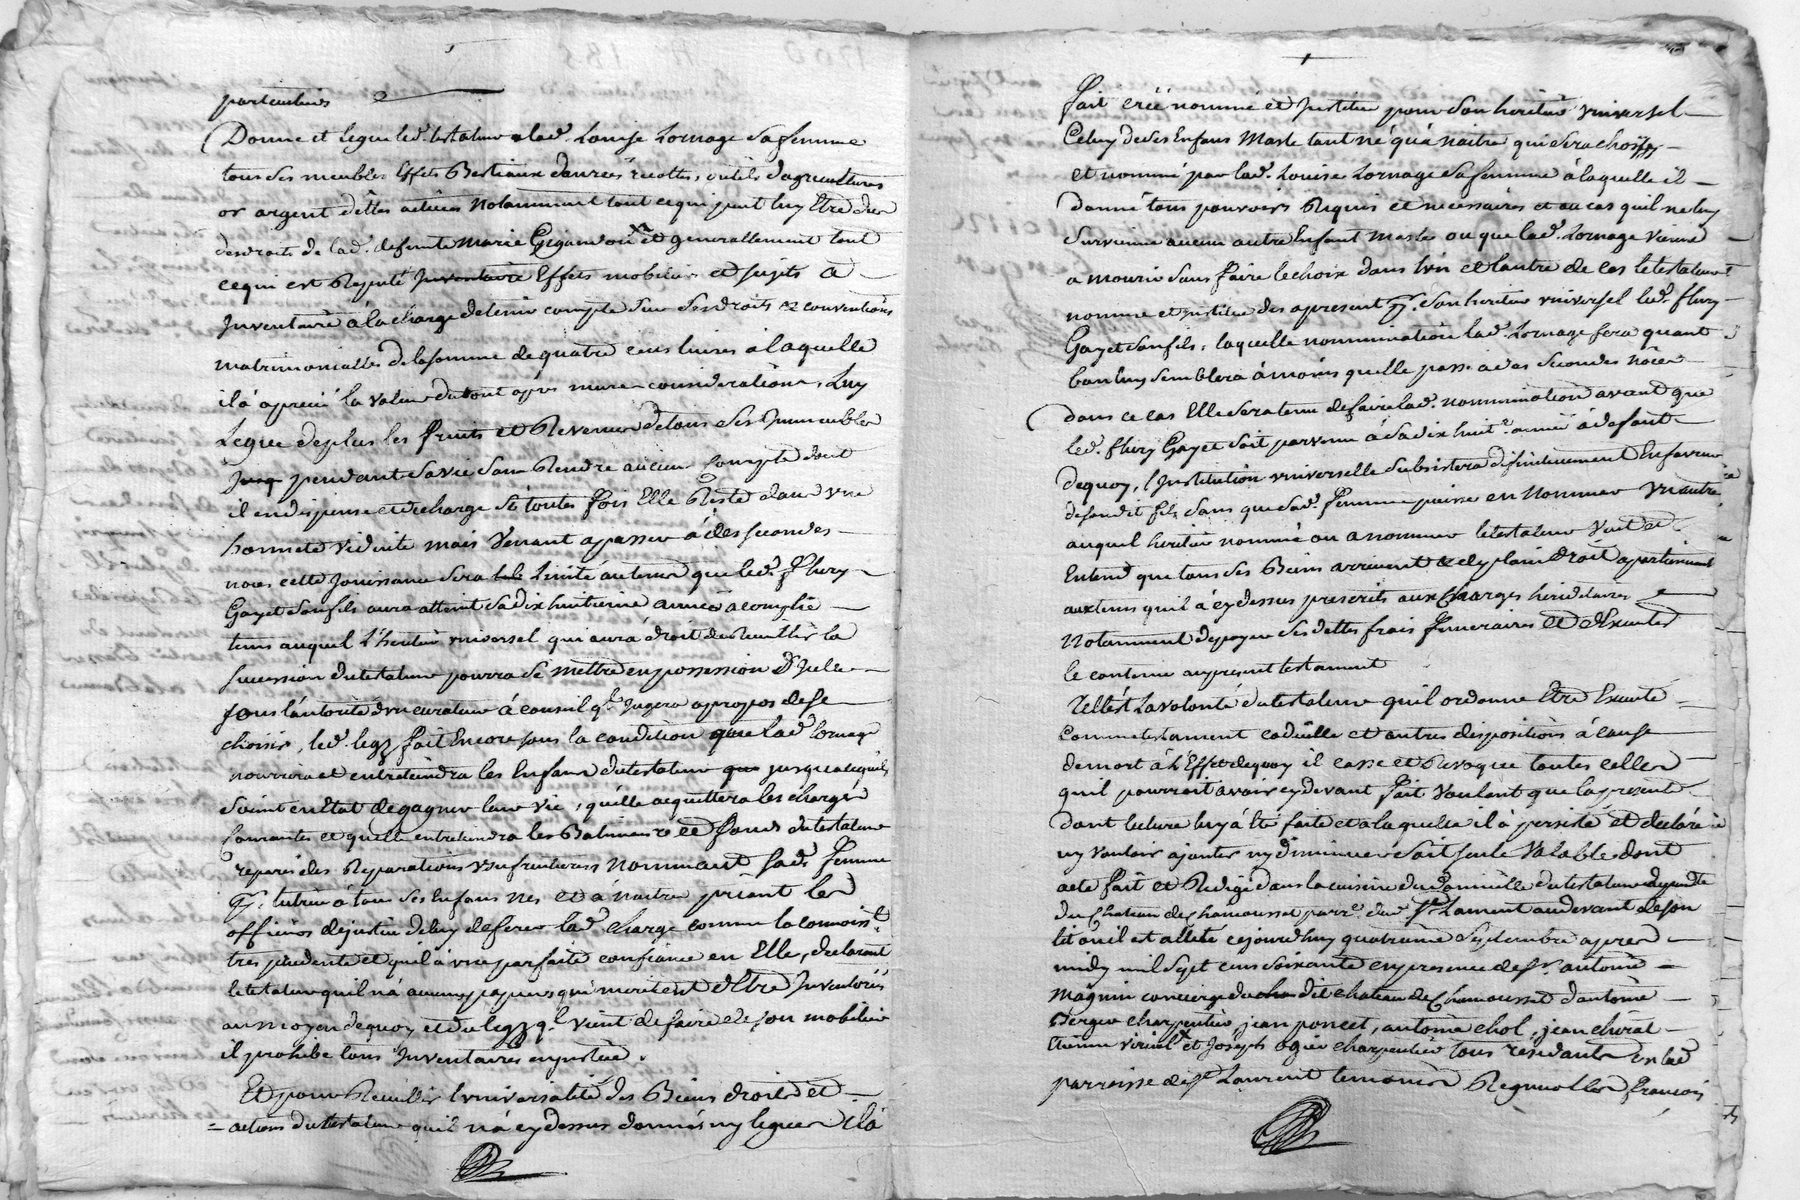 particuliers
Donne et legue led. testateur a lad. Louise Lornage sa femme
tous ses meubles Effets Bestiaux danrées recoltes, outils dagricultures
or argent dettes actives Notamment tout ce qui peut luy Etre deu
des droits de lad. defunte Marie et generallement tout
ce qui est Reputé Inventaire Effets mobiliers et sujets a
Inventaire à la charge de tenir compte sur ses droits et conventions
matrimonialles de la somme de quatre cens livres a laquelle
il à aprecié la valeur du tout apres mure consideration, Luy
Legue de plus les fruits et Revenus de tous ses Immeubles
pendant sa vie sans Rendre aucun Compte dont
il en dispense et decharge si toutes fois Elle Reste dans une
honnete viduité mais Venant a passer à des secondes
noces cette Jouissance sera Limité au tems que led. fleury
Gayet son fils aura atteint sa dix huitieme année acomplie
tems auquel L'heritier universel qui aura droit de Recueillir la
sucession du testateur pourra se mettre en possession d'Icelle
sous l'autorité d'un curateur à conseil ql. Jugera apropos de se
choisir, led. legz fait Encore sous la condition que lad. Lornage
nourrira et entretiendra les Enfans du testateur jusqua ce quils
soient en Etat de gagner leur vie, quelle acquittera les charges
Courantes et quelle entretiendra les Batimens et fonds du testateur
reparés des Reparations usufruitieres nommant sad. femme
pr. tutrice à tous ses Enfans nés et à naitre priant les
officiers de justice de luy deferer lad. charge comme la connoisst.
tres prudente et quil à une parfaite confiance en Elle, declarant
le testateur quil n'à aucuns papiers qui meritent d'Etre Inventoriés
au moyen de quoy et du legz ql. vient de faire de son mobilier
il prohibe tous Inventaires en justice.
Et pour Recueillir Luniversalité des Biens droits et
actions du testateur quil n'à cy dessus donnés ny legués il à
fait créé nommé et Institué pour son heritier universel
Celuy de ses Enfans Masle tant né qu'à naitre qui sera choisy
et nommé par lad. Louise Lornage sa femme à laquelle il
donne tous pouvoirs Requis et necessaires et au cas quil ne luy
survienne aucun autre Enfant Masle ou que lad. Lornage vienne
a mourir sans faire le choix dans lun et lautre de ces le testateur
nomme et institue des apresent pr. son heritier universel led. fleury
Gayet son fils, laquelle nommination lad. Lornage fera quant
bon luy semblera à moins quelle passe a des Secondes nôces
dans ce cas Elle sera tenue de faire lad. nommination avant que
led. fleury Gayet soit parvenu à sa dix huite. année à defaut
de quoy, l'Institution universelle subsistera definitivement En faveur
de sondit fils sans que sad. femme puisse en Nommer Un autre
auquel heritier nommé ou a nommer le testateur Veut et
Entend que tous ses Biens arrivent et de plein droit apartiennent
aux tems quil à cy dessus prescrits aux Charges hereditaires
Notamment de payer ses dettes frais funeraires et d'Executer
le contenu au present testament
Telle est La volonté du testateur quil ordonne Etre Executé
Comme testament codicille et autres dispositions à cause
de mort à L'Effet de quoy il casse et Revoque toutes celles
quil pourroit avoir cy devant fait Voulant que la presente
dont lecture luy à Eté faite et a laquelle il à persisté et declaré
ny vouloir ajouter ny diminuer soit seule Valable dont
acte fait et Redigé dans la cuisine du Domicille du testateur dependte
du chateau de Chamousset parre. dud. St. Laurent au devant de son
lit ou il est allité cejourdhuy quatrieme Septembre apres
midy mil sept cens soixante en presence de sr. antoine
Magnin concierge du dit chateau de Chamousset d'antoine
Berger charpentier, jean poncet, antoine chol, jean
Etienne et Joseph ogier charpentier tous residants en lad
parroisse de St Laurent temoins Requis les francois